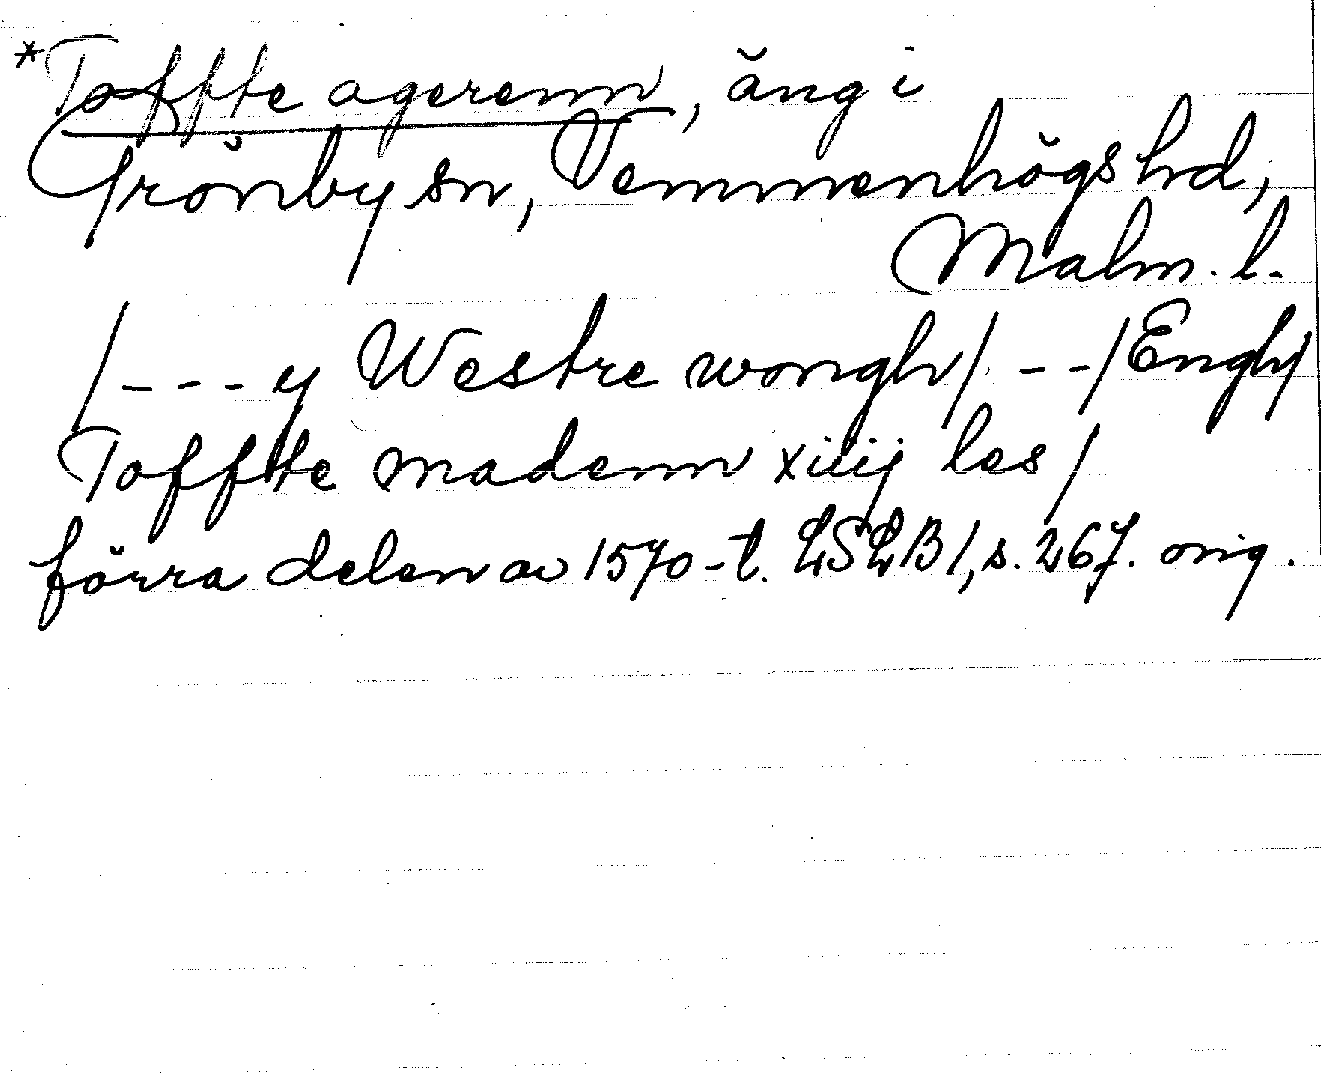 *Toffte agerenn, äng i
Grönby sn, Vemmenhögs hd,
Malm. l.
/--- y Westre wongh/ --/Engh/
Toffte madenn xiiij les/
förra delen av 1570-t. LSLB1, s. 267. orig.